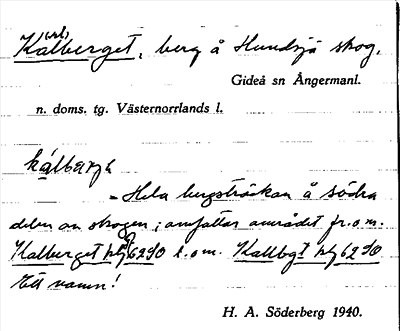 (vi,)
Kalberget, berg å Hundsjö skog.
Gideå sn Ångermanl.
n. doms. tg. Västernorrlands l.
kálbærje
= Hela bergsträckan å södra
delen av skogen; omfattar området fr.o.m.
Kalberget blj 6290 t.o.m. Kallbgt blj 6290
Ett namn!
H. A. Söderberg 1940.